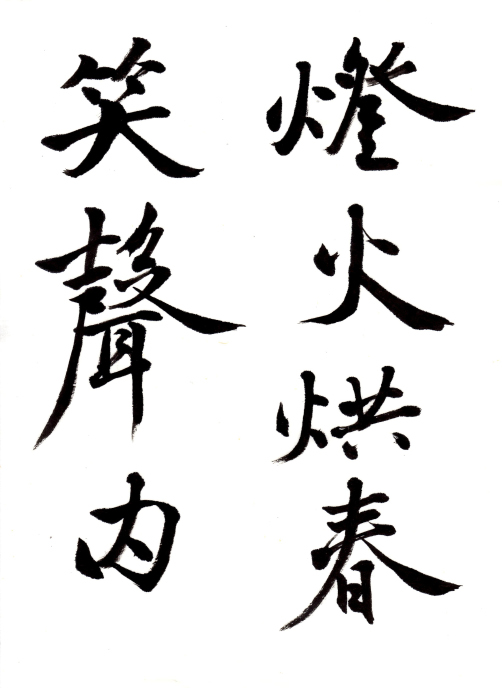 燈火烘春
笑聲内